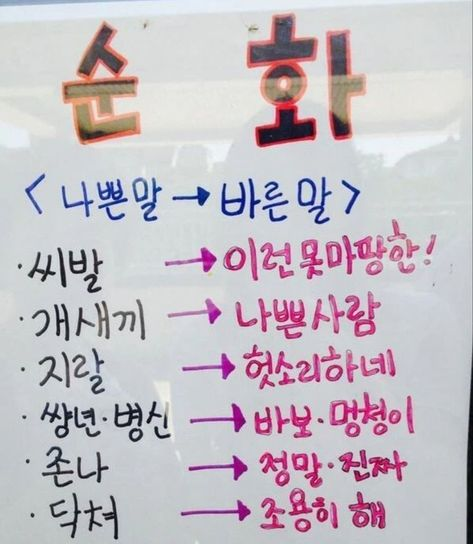 순화
<나쁜말→바른말>
·씨발 → 이런못마땅한!
·개새끼 → 나쁜사람
·지랄 → 헛소리하네
·쌍년·병신 → 바보·멍청이
·존나 → 정말·진짜
·닥쳐 → 조용히 해